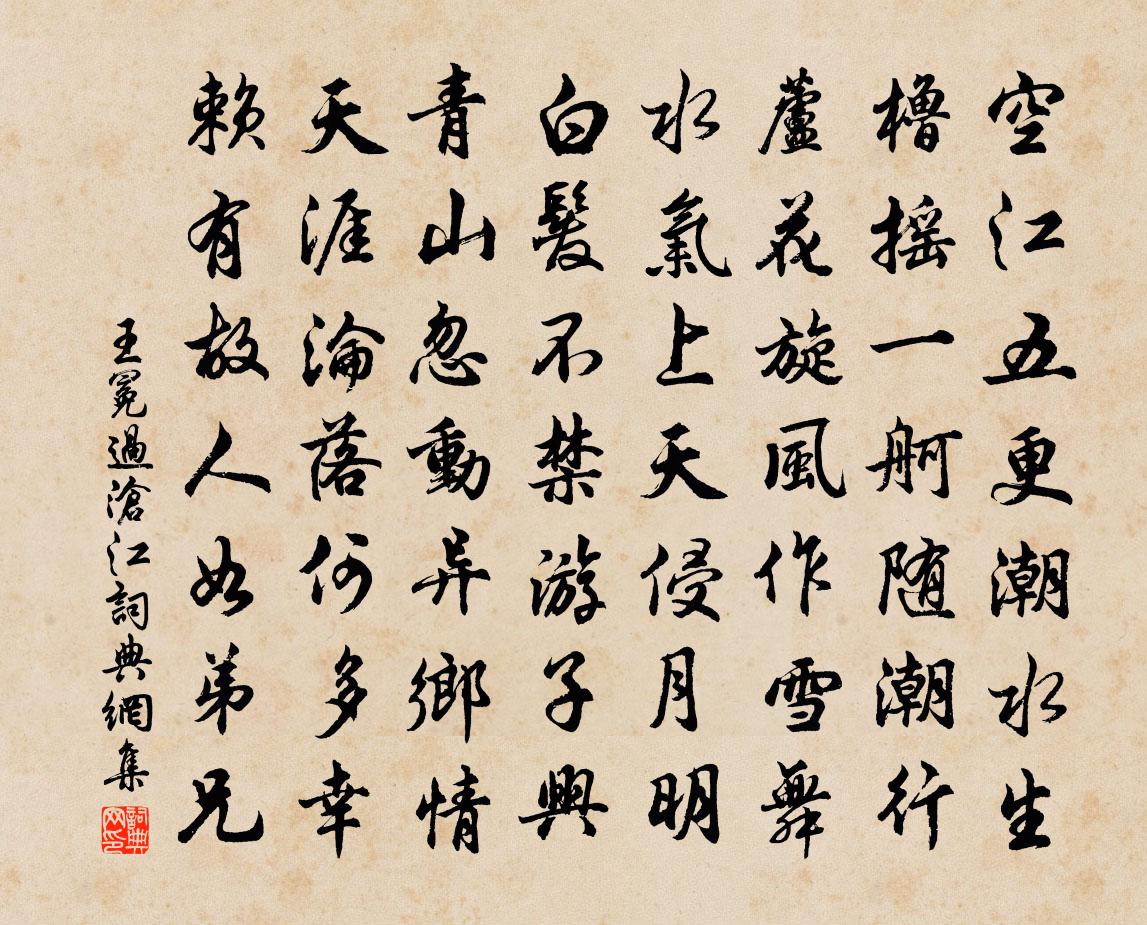 空江五更潮水生
櫓摇一舸随潮行
蘆花旋風作雪舞
水氣上天侵月明
白髮不禁游子興
青山忽動异鄉情
天涯淪落何多幸
賴有故人如弟兄
王冕過滄江詞典網集
詞典网印